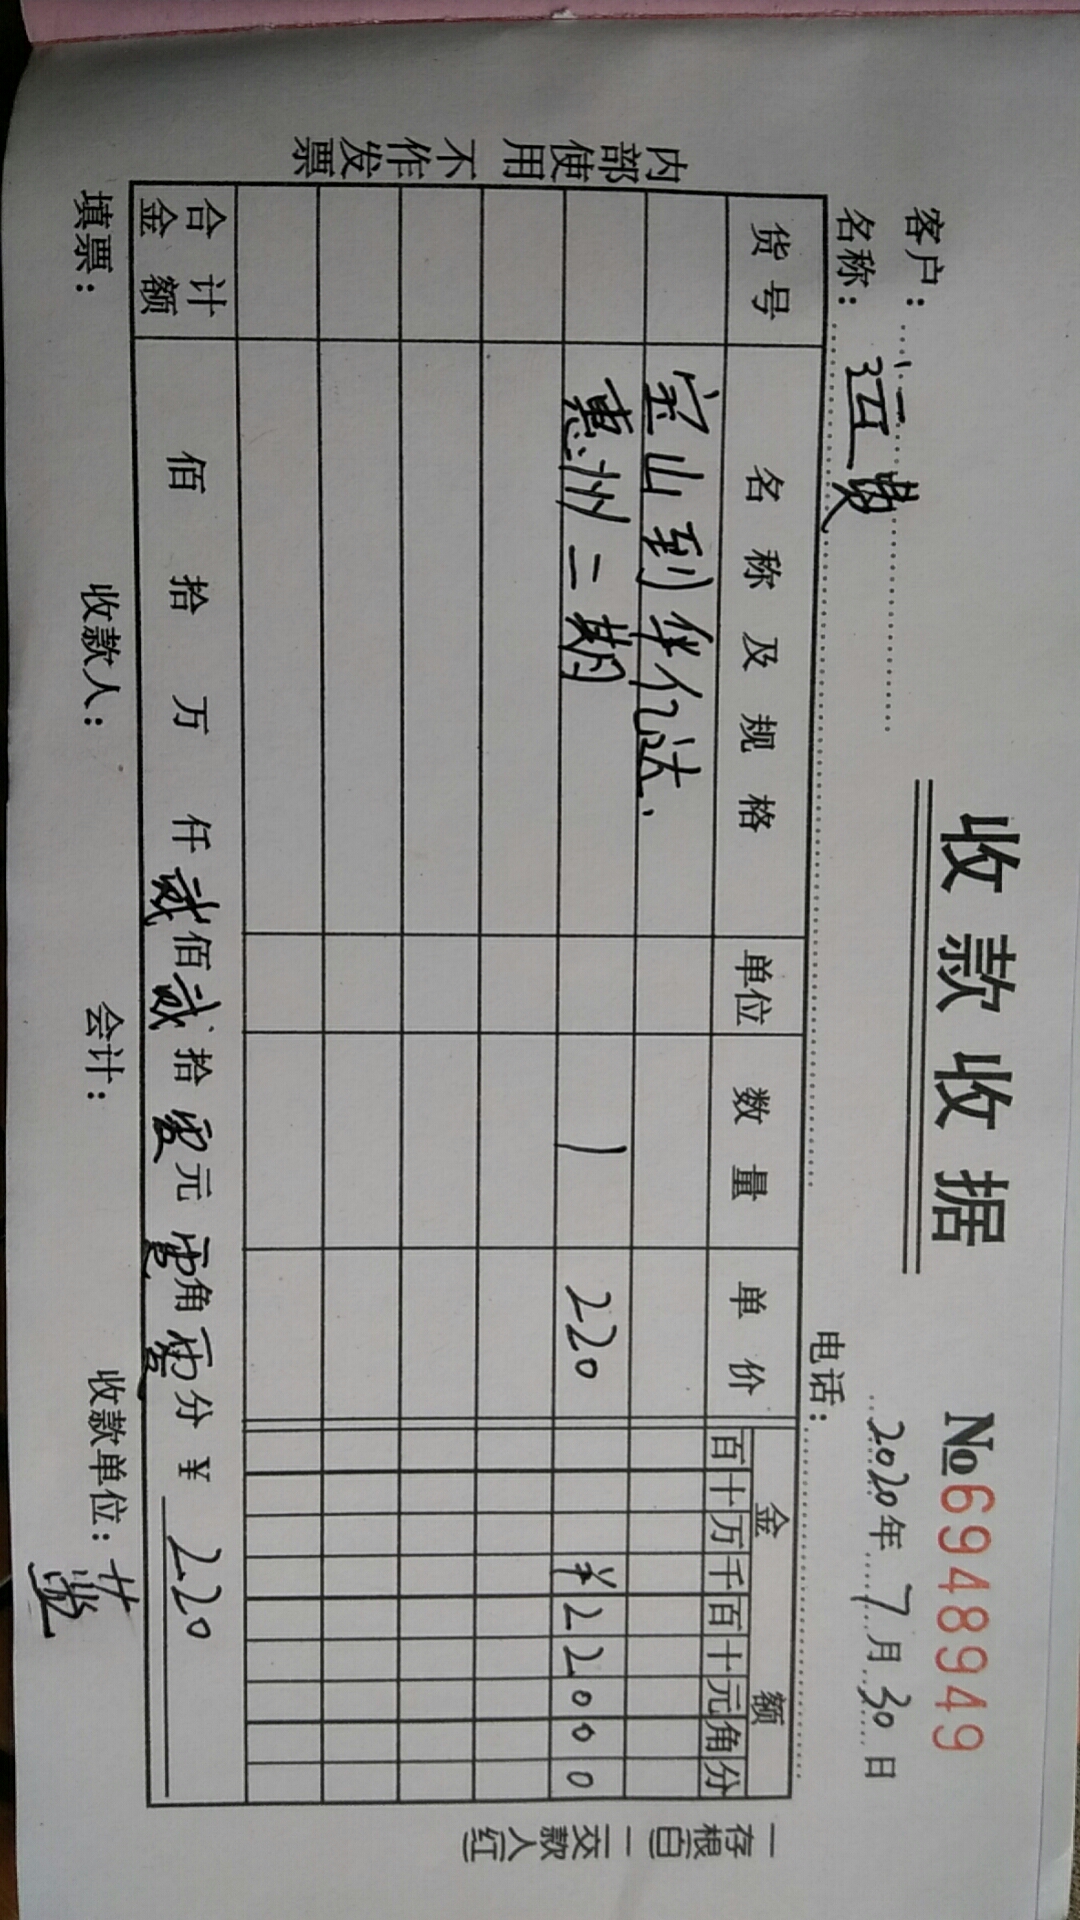 收款收据
№6948949
2020年7月30日
客户
名称：运费
电话：
货号 名称及规格 单位 数量 单价 金额
百十万千百十元角分
宝山到华亿达.
惠州二期 1 220 ¥22000
合计
金额 佰 拾 万 仟贰佰贰拾零元零角零分 ¥ 220
填票： 收款人： 会计： 收款单位：
内部使用 不作发票
一存根(白) 一交款人(红)